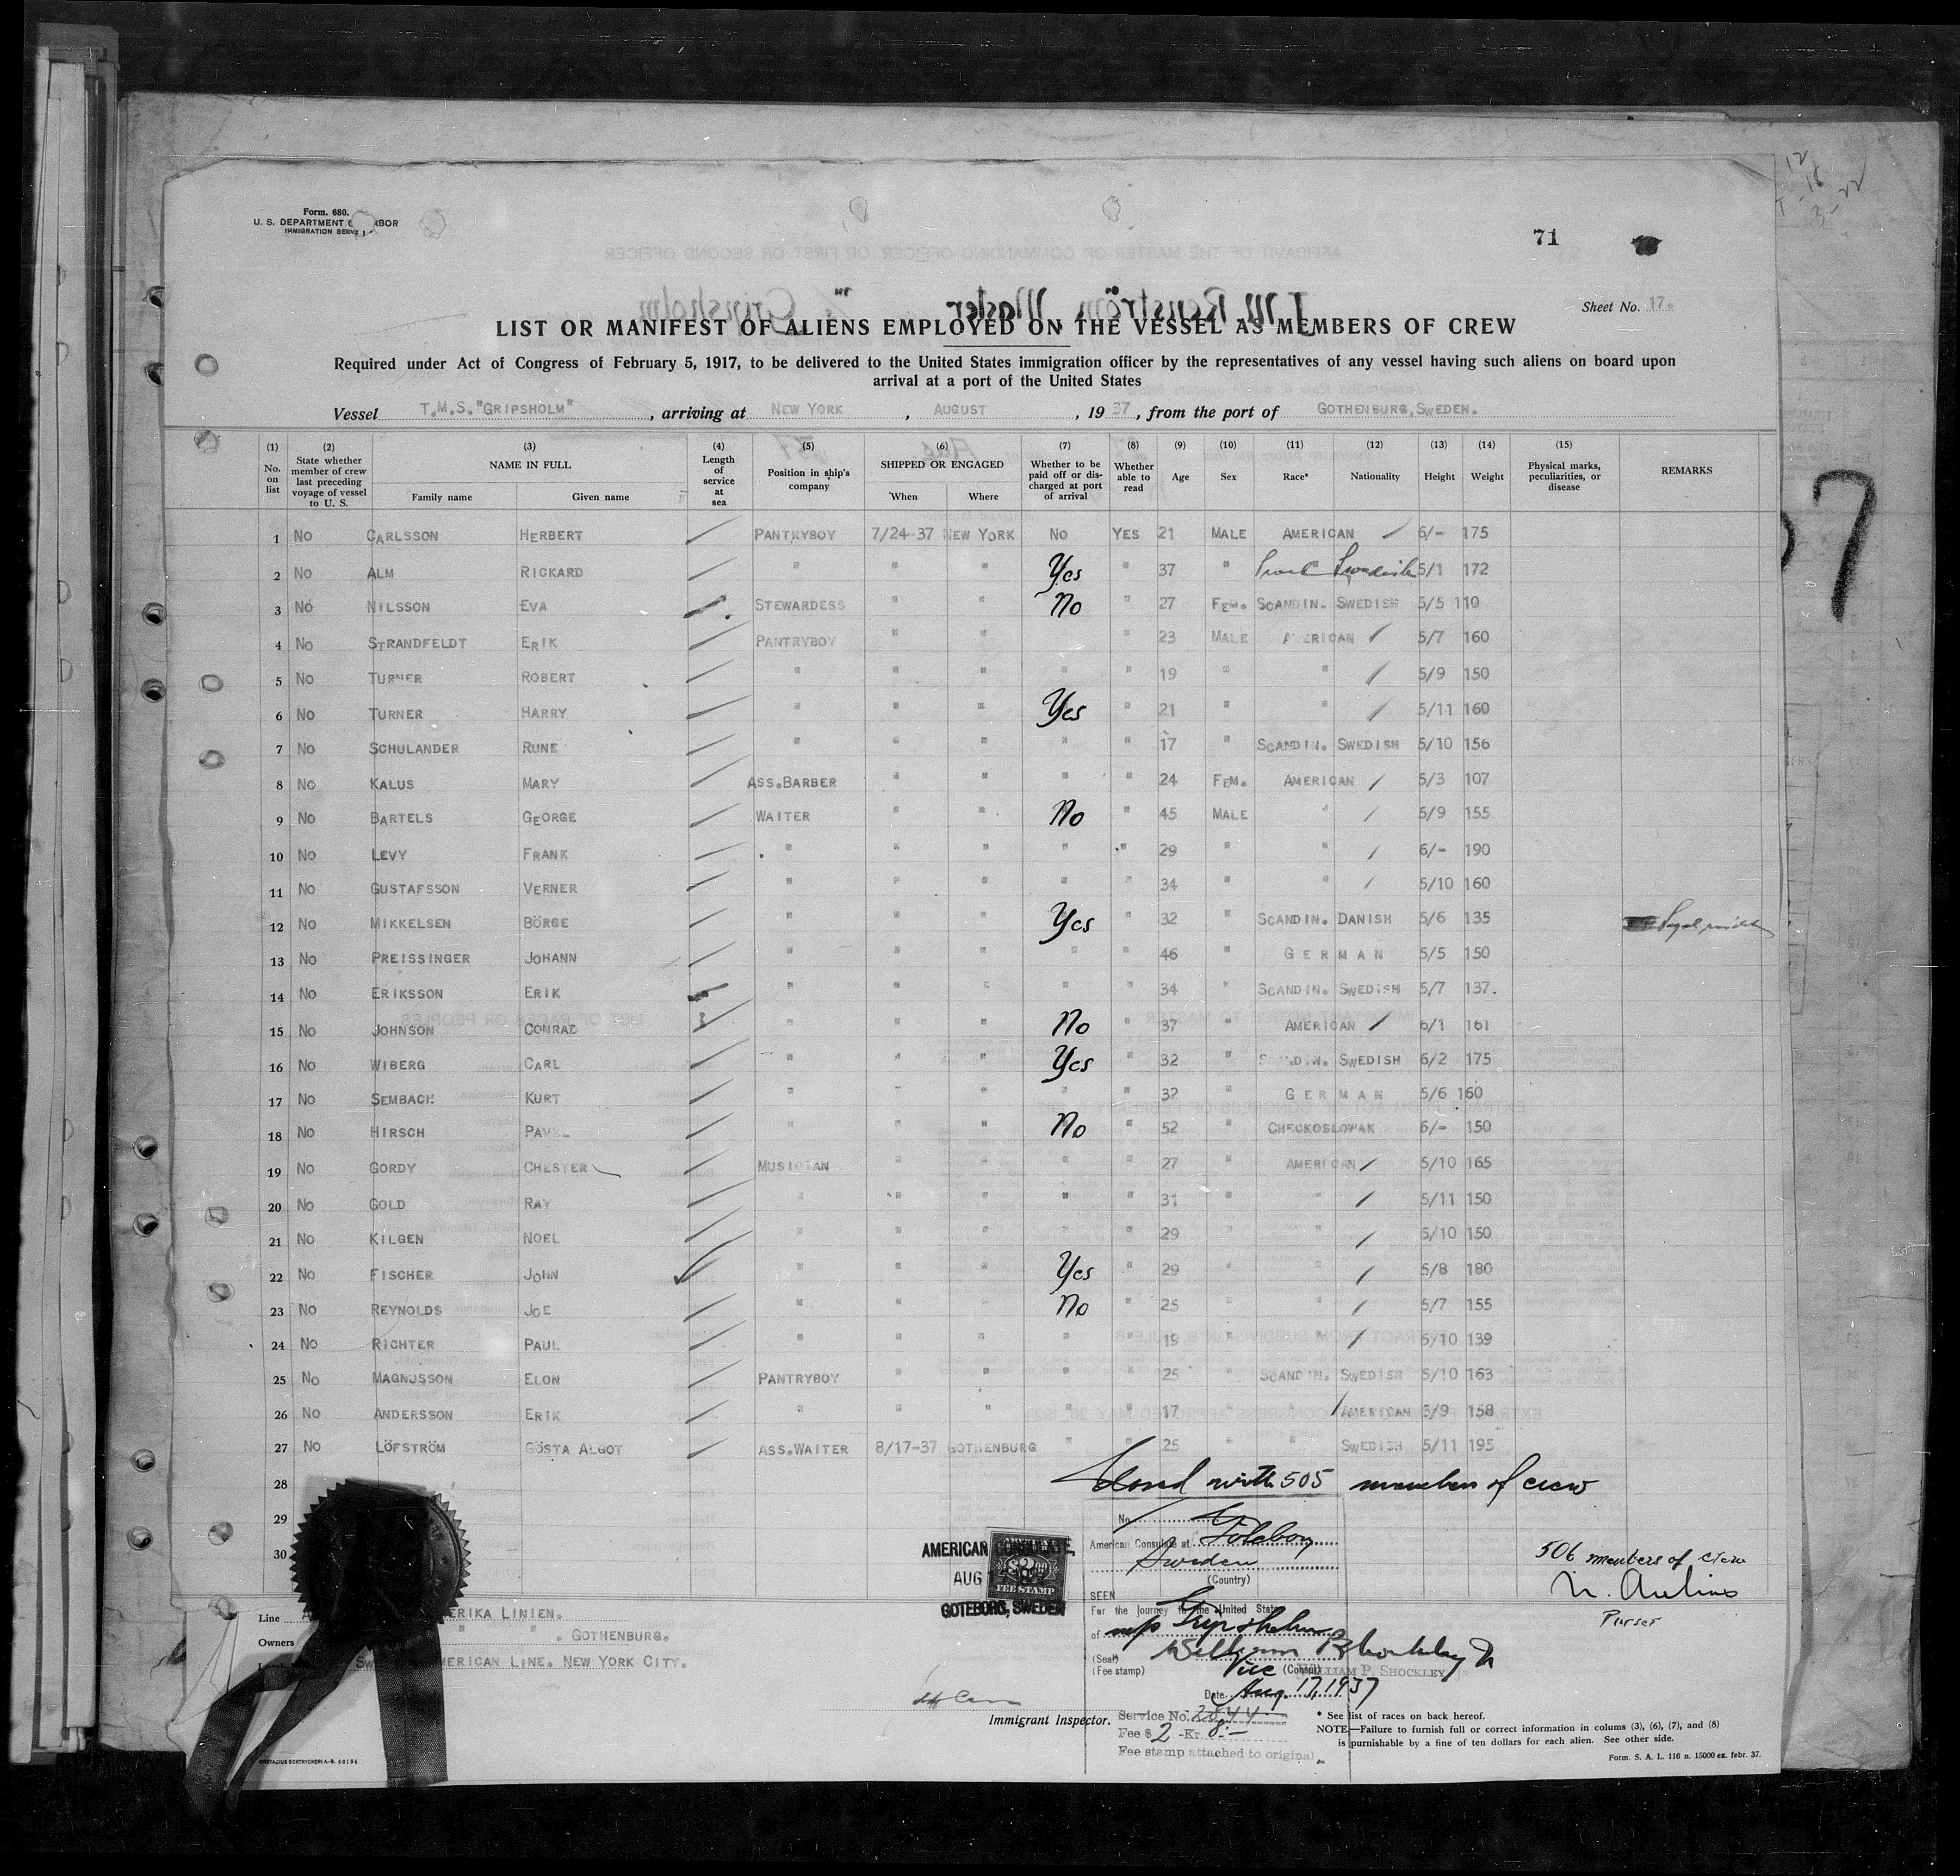 Form. 680.
U. S. DEPARTMENT
IMMIGRATION
71
Sheet No. 17.
LIST OR MANIFEST OF ALIENS EMPLOYED ON THE VESSEL AS MEMBERS OF CREW
Required under Act of Congress of February 5, 1917, to be delivered to the United States immigration officer by the representatives of any vessel having such aliens on board upon
arrival at a port of the United States
Vessel T.M.S."GRIPSHOLM", arriving at NEW YORK, AUGUST, 1937, from the port of GOTHENBURG,SWEDEN.
(1) (2) (3) (4) (5) (6) (7) (8) (9) (10) (11) (12) (13) (14) (15)
No. on list State whether member of crew last preceding voyage of vessel to U. S. NAME IN FULL Family name Given name Length of service at sea Position in ship's company SHIPPED OR ENGAGED When Where Whether to be paid off or discharged at port of arrival Whether able to read Age Sex Race* Nationality Height Weight Physical marks, peculiarities, or disease REMARKS
1 No CARLSSON HERBERT PANTRYBOY 7/24-37 NEW YORK No YES 21 MALE AMERICAN 6/- 175
2 No ALM RICKARD " " " Yes " 37 " Swedish 5/1 172
3 No NILSSON EVA STEWARDESS " " No " 27 FEM. SCANDIN. SWEDISH 5/5 110
4 No STRANDFELDT ERIK PANTRYBOY " " " 23 MALE AMERICAN 5/7 160
5 No TURNER ROBERT " " " " " 19 " " 5/9 150
6 No TURNER HARRY " " " Yes " 21 " " 5/11 160
7 No SCHULANDER RUNE " " " " " 17 " SCANDIN. SWEDISH 5/10 156
8 No KALUS MARY ASS.BARBER " " " " 24 FEM. AMERICAN 5/3 107
9 No BARTELS GEORGE WAITER " " No " 45 MALE " 5/9 155
10 No LEVY FRANK " " " " " 29 " " 6/- 190
11 No GUSTAFSSON VERNER " " " " " 34 " " 5/10 160
12 No MIKKELSEN BÖRGE " " " Yes " 32 " SCANDIN. DANISH 5/6 135
13 No PREISSINGER JOHANN " " " " " 46 " GERMAN 5/5 150
14 No ERIKSSON ERIK " " " " " 34 " SCANDIN. SWEDISH 5/7 137.
15 No JOHNSON CONRAD " " " No " 37 " AMERICAN 6/1 161
16 No WIBERG CARL " " " Yes " 32 " SCANDIN. SWEDISH 6/2 175
17 No SEMBACH KURT " " " " " 32 " GERMAN 5/6 160
18 No HIRSCH " " " No " 52 " CHECKOSLOWAK 6/- 150
19 No GORDY CHESTER MUSICIAN " " " " 27 " AMERICAN 5/10 165
20 No GOLD RAY " " " " " 31 " " 5/11 150
21 No KILGEN NOEL " " " " " 29 " " 5/10 150
22 No FISCHER JOHN " " " Yes " 29 " " 5/8 180
23 No REYNOLDS JOE " " " No " 25 " " 5/7 155
24 No RICHTER PAUL " " " " " 19 " " 5/10 139
25 No MAGNUSSON ELON PANTRYBOY " " " " 25 " SCANDIN. SWEDISH 5/10 163
26 No ANDERSSON ERIK " " " " " 17 " " AMERICAN 5/9 158
27 No LÖFSTRÖM GÖSTA ALGOT ASS.WAITER 8/17-37 GOTHENBURG " " 25 " " SWEDISH 5/11 195
28
29
30
Closed with 505 members of crew
No.
American Consulate at Göteborg
Sweden
(Country)
AMERICAN CONSULATE,
AUG
GOTEBORG, SWEDEN
$2.00
FEE STAMP
506 members of crew
Purser
SEEN
For the journey to the United States
of m/s Gripsholm
William P Shockley Jr
(Seal)
(Fee stamp)
Vice (Consul)
WILLIAM P. SHOCKLEY
Date Aug. 17, 1937
Service No. 2844
Fee $ 2 -Kr. 8.-
Fee stamp attached to original.
Line ERIKA LINIEN.
Owners " " . GOTHENBURG.
AMERICAN LINE. NEW YORK CITY.
Immigrant Inspector.
* See list of races on back hereof.
NOTE—Failure to furnish full or correct information in colums (3), (6), (7), and (8)
is punishable by a fine of ten dollars for each alien. See other side.
Form. S. A. L. 116 n. 15000 ex. febr. 37.